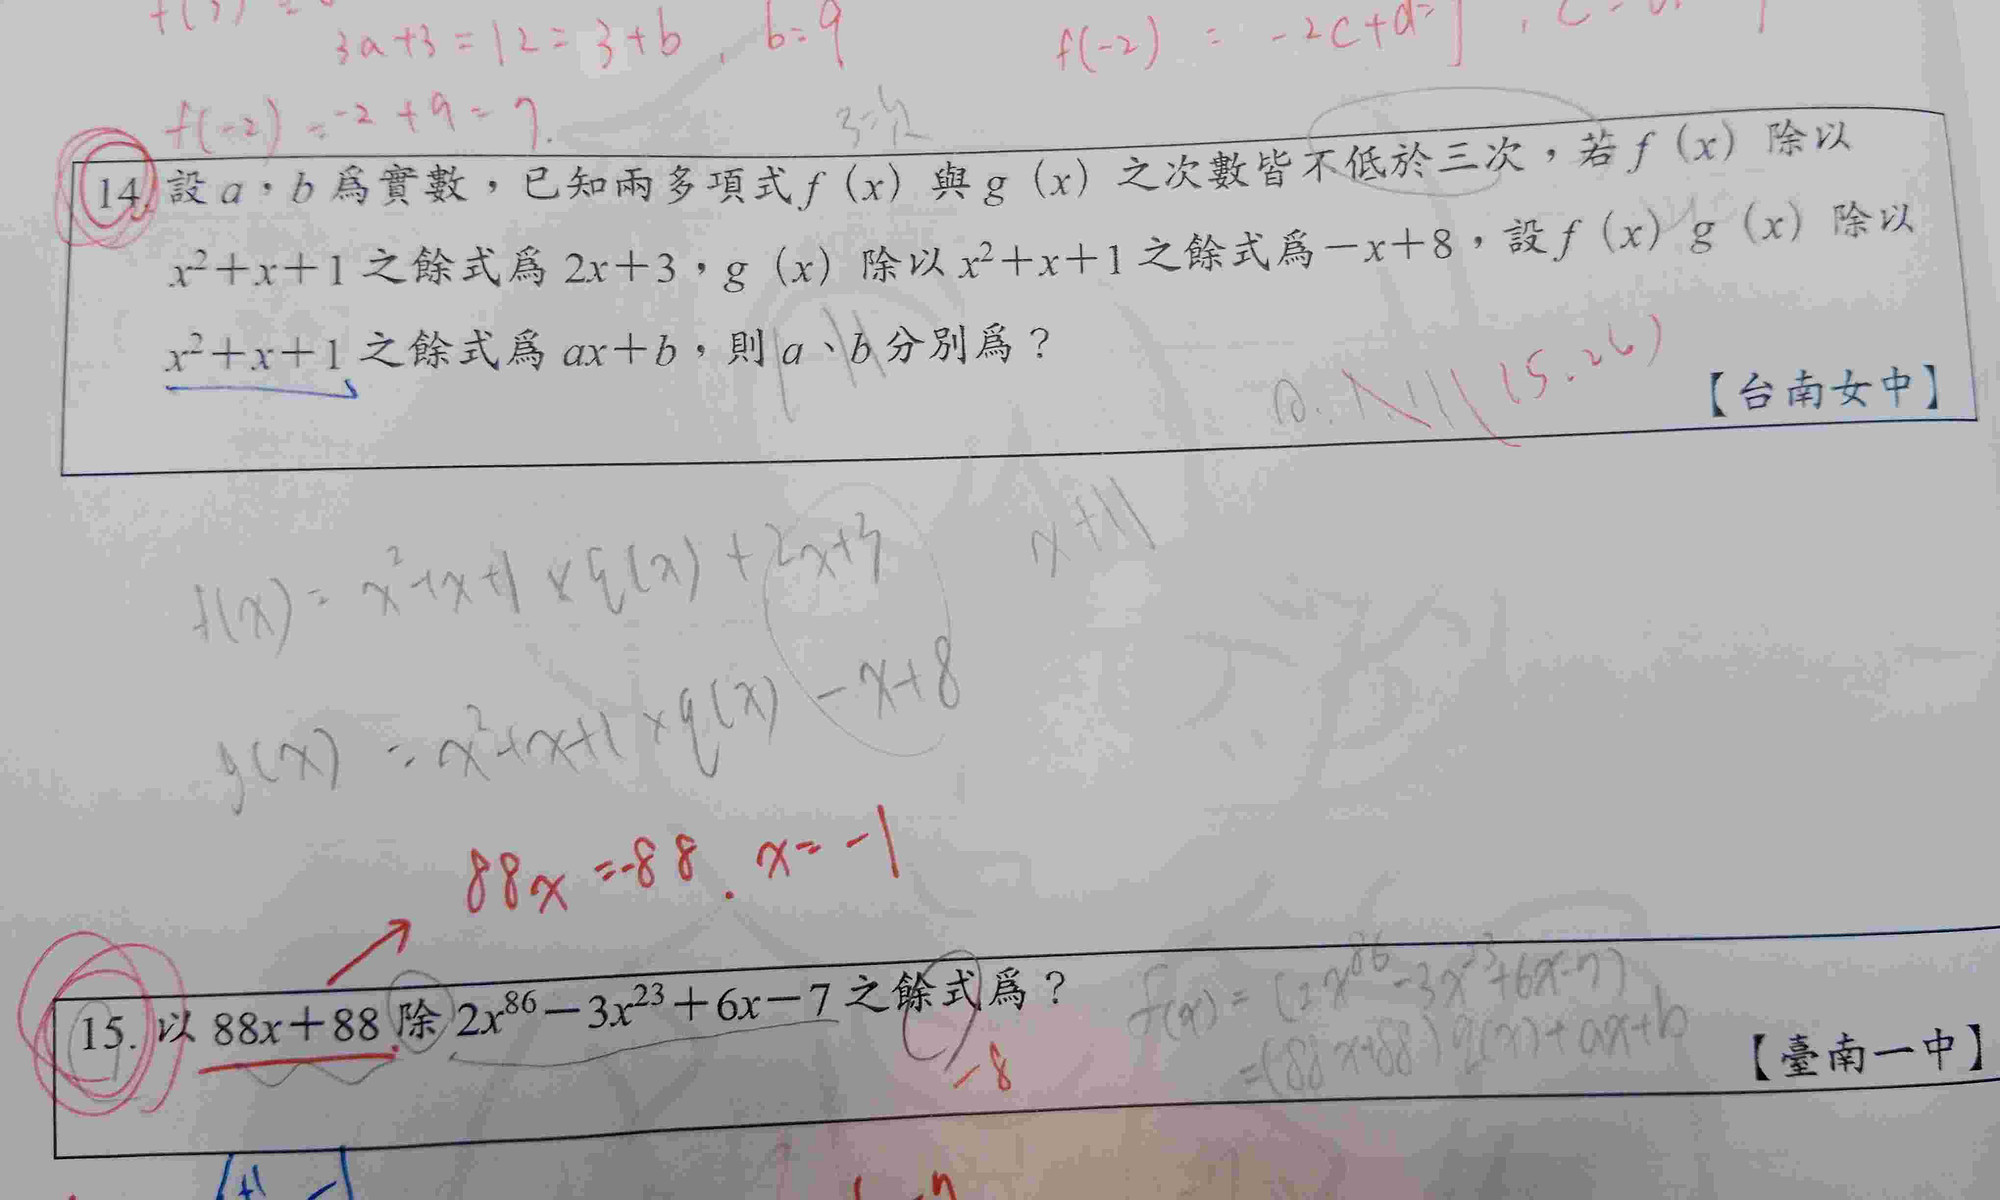 3a+3=12=3+b, b=9
f(-2) = -2c+d=
f(-2) = -2+9=7.
14. 設 a，b 爲實數，已知兩多項式 f（x）與 g（x）之次數皆不低於三次，若 f（x）除以
x²+x+1 之餘式爲 2x+3，g（x）除以 x²+x+1 之餘式爲 −x+8，設 f（x）g（x）除以
x²+x+1 之餘式爲 ax+b，則 a、b 分別爲？
(5.26)
【台南女中】
f(x) = x²+x+1 × q(x) + 2x+3
x+11
g(x) = x²+x+1 × q(x) −x+8
88x=-88. x=-1
15. 以 88x+88 除 2x⁸⁶−3x²³+6x−7 之餘式爲？
f(x) = (2x⁸⁶-3x²³+6x-7)
=(88x+88) q(x)+ax+b
-8
【臺南一中】